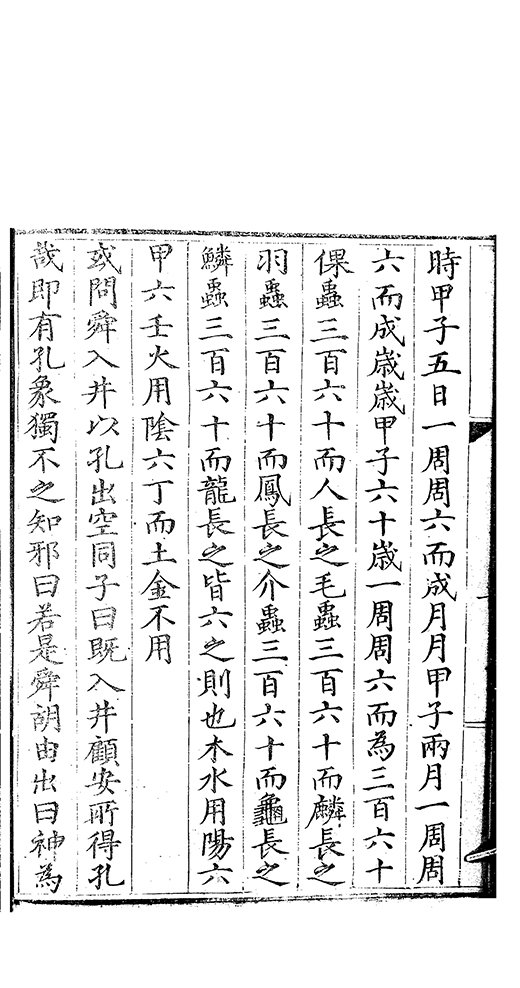 時甲子五日一周周六而成月月甲子兩月一周周
六而成歲歲甲子六十歲一周周六而為三百六十
倮蟲三百六十而人長之毛蟲三百六十而麟長之
羽蟲三百六十而鳳長之介蟲三百六十而龜長之
鱗蟲三百六十而龍長之皆六之則也木水用陽六
甲六壬火用陰六丁而土金不用
或問舜入井以孔出空同子曰既入井顧安所得孔
哉即有孔象獨不之知邪曰若是舜胡由出曰神為